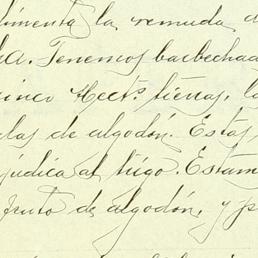 limenta la remuda d
da. Tenemos barbechad
cinco Hects tierras, la
las de algodón. Estas
judica al trigo. Estam
fruto de algodón, y p